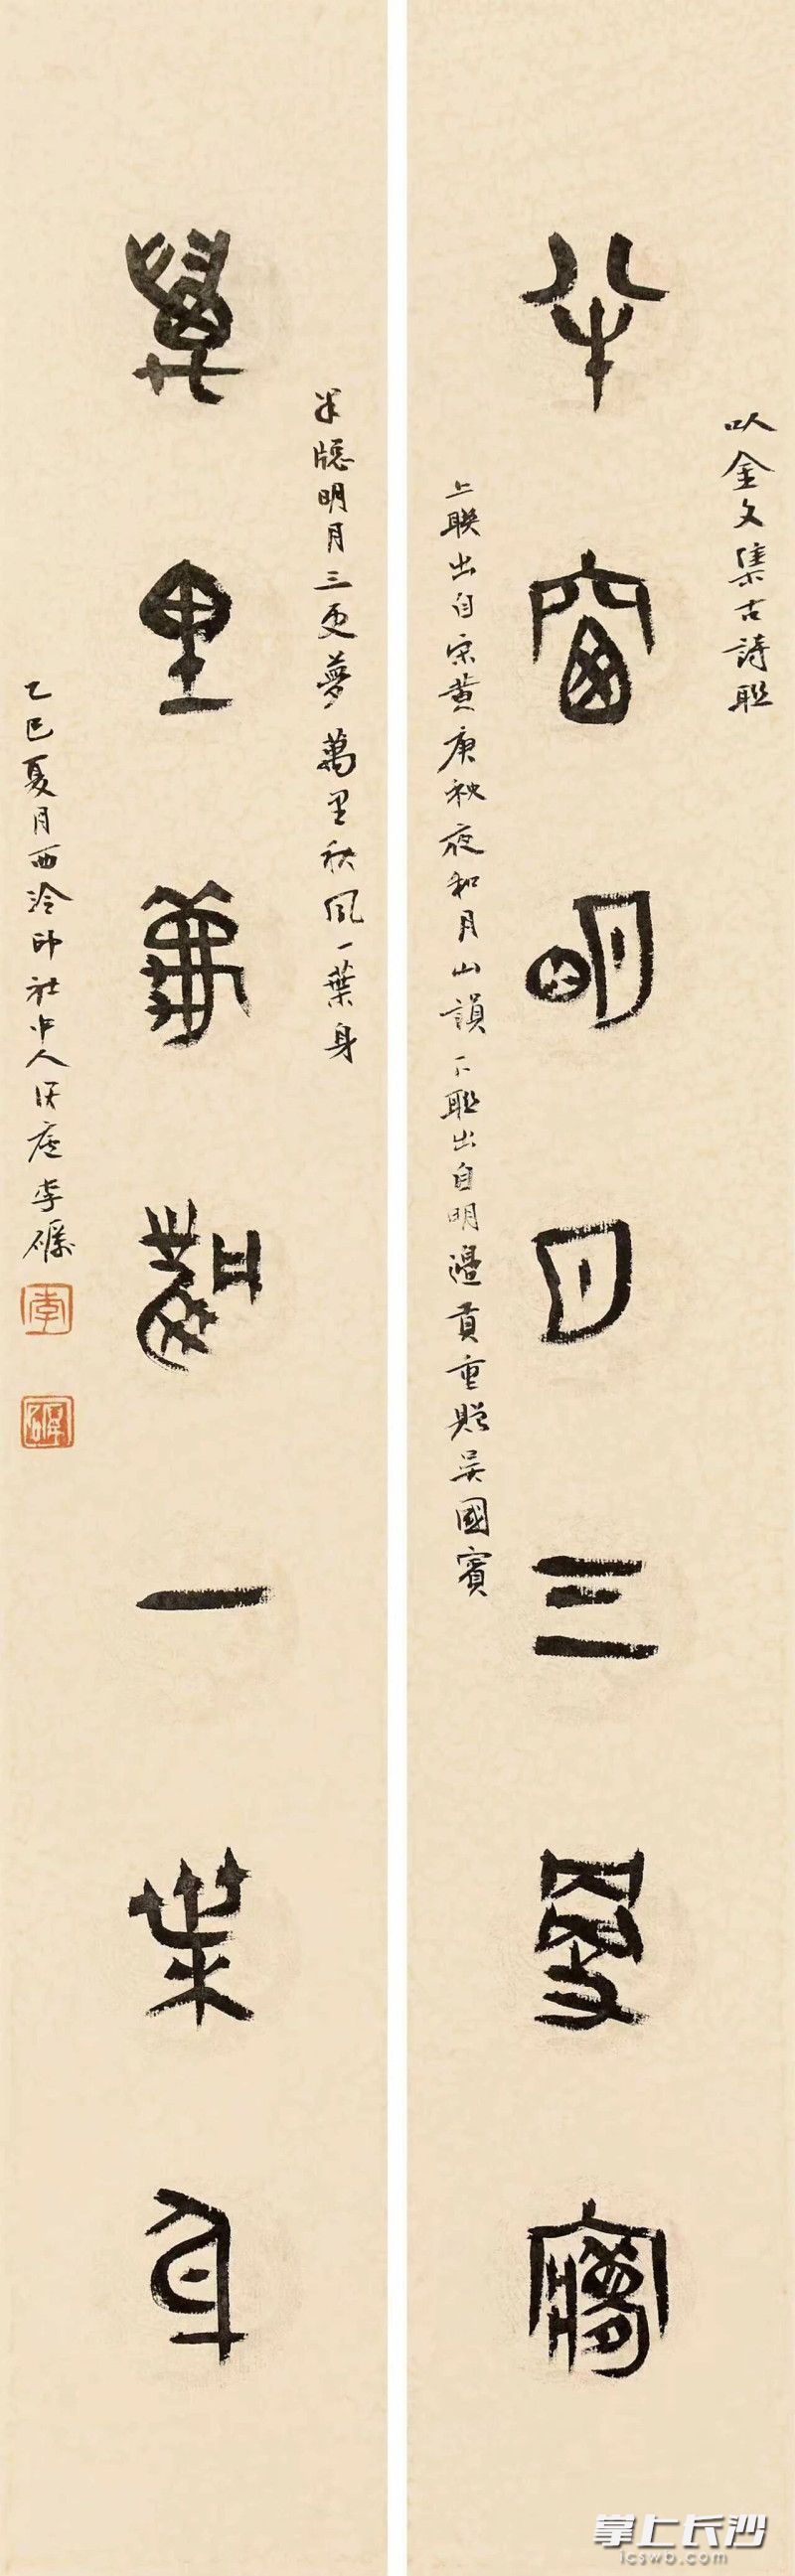 以金文集古詩聯
半窗明月三更夢
上聯出自宋黄庚秋夜和月山韻 下聯出自明邊貢重贈吴國賓
半牕明月三更夢萬里秋風一葉身
萬里秋風一葉身
乙巳夏月西泠印社中人李礪
李
掌上长沙
icswb.com